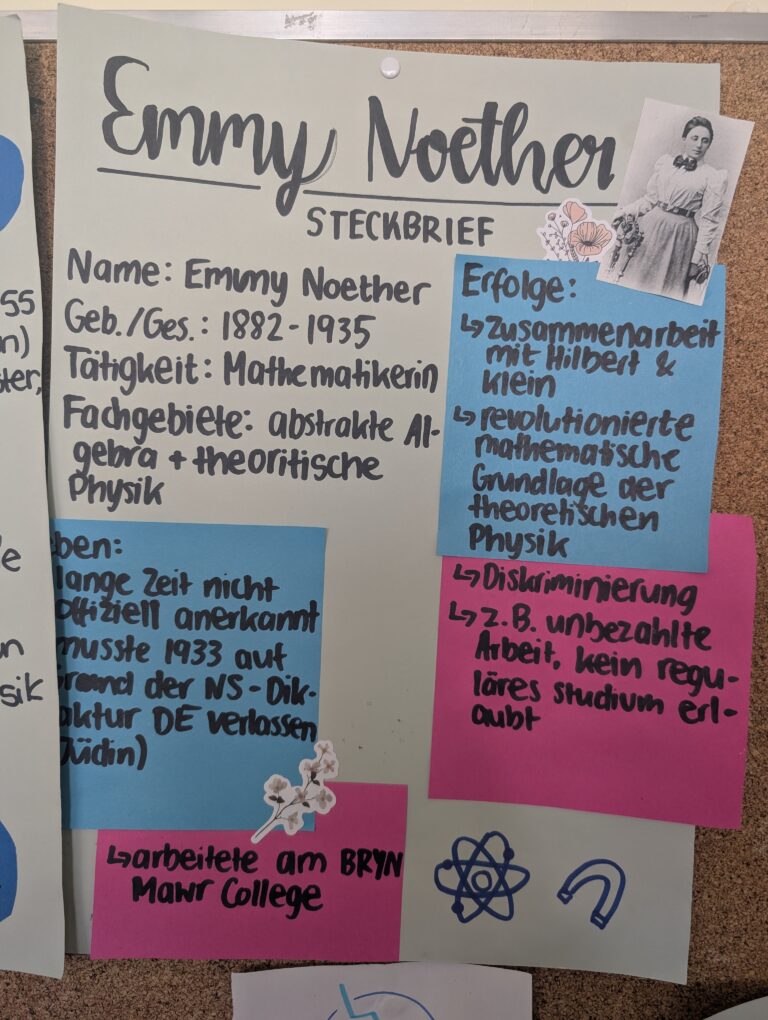 Emmy Noether
STECKBRIEF
Name: Emmy Noether
Geb./Ges.: 1882-1935
Tätigkeit: Mathematikerin
Fachgebiete: abstrakte Al-
gebra + theoritische
Physik
Erfolge:
↳ Zusammenarbeit
mit Hilbert &
Klein
↳ revolutionierte
mathematische
Grundlage der
theoretischen
Physik
ben:
lange Zeit nicht
offiziell anerkannt
musste 1933 auf
der NS-Dik-
aktur DE verlassen
Jüdin)
↳ Diskriminierung
↳ z.B. unbezahlte
Arbeit, kein regu-
läres studium erl-
aubt
↳ arbeitete am BRYN
Mawr College